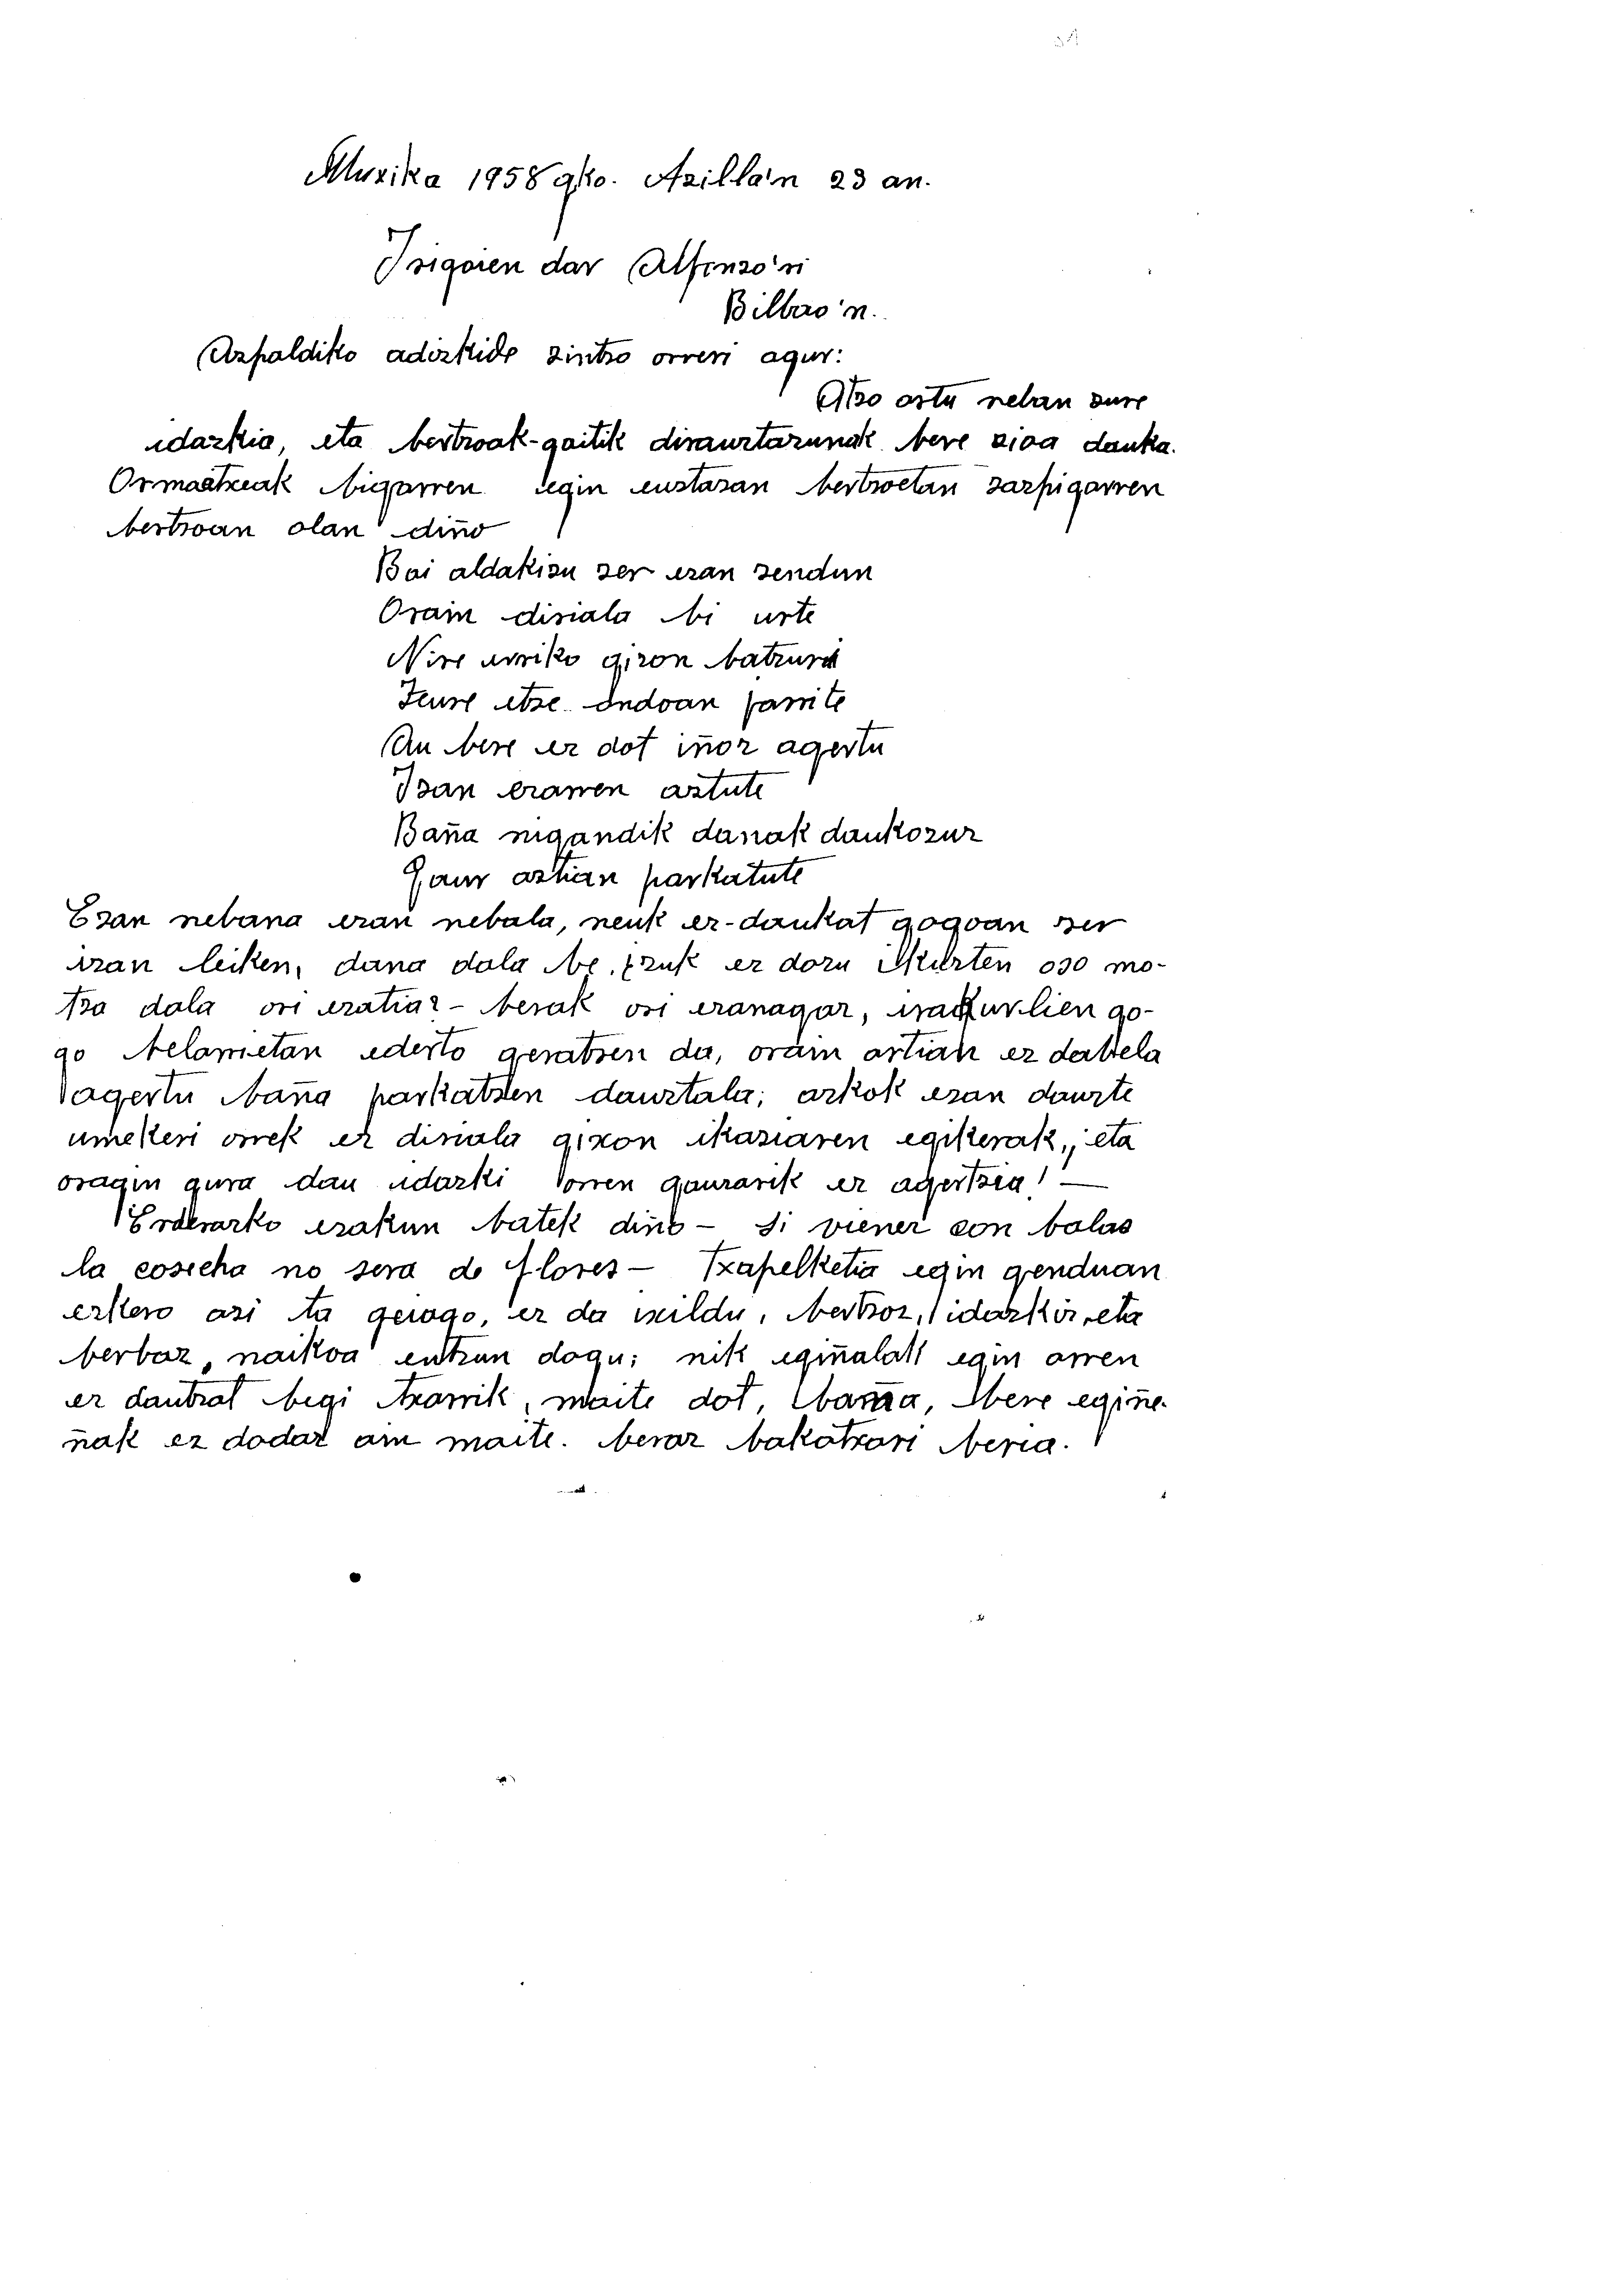 Muxika 1958 gko. Azilla'n 23 an.
Irigoien dar Alfonso'ri
Bilbao'n.
Aspaldiko adizkide zintzo orreri agur:
Atzo artu neban zure
idazkia, eta bertsoak-gaitik dirauztazunak bere zioa dauka.
Ormaetxeak bigarren egin eustazan bertsoetan zazpigarren
bertsoan olan diño
Bai aldakizu zer esan zendun
Orain diriala bi urte
Nire urriko gizon batzuri
Zeure etxe ondoan jarrite
Au bere ez dot iñoz agertu
Izan ezarren aztute
Baña nigandik danak daukozuz
Gaur artian parkatute
Esan nebana esan nebala, neuk ez-daukat gogoan zer
izan leiken, dana dala be, zuk ez dozu Akurten oso mo-
tza dala ori eratiaz - berak ori esanagaz, irakurlien go-
go belarrietan ederto geratzen da, orain artian ez dabela
agertu baña parkatzen dauztala; askok esan dauzte
umekeri orrek ez diriala gizon ikasiaren egikerak, eta
oragin gura dau idazki orren gauzarik ez agertzia! —
Erderazko esakun batek diño - si vienen con balas
la cosecha no sera de flores - Txapelketia egin genduan
ezkero asi ta geiago, ez da ixildu, bertsoz, idazkiz, eta
berbaz, naikoa entzun dogu; nik egiñalak egin arren
ez dautzat begi txarrik, maite dot, baña, bere egiñe-
ñak ez dodaz ain maite. beraz bakotxari beria.